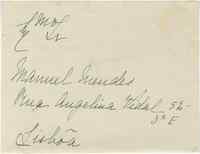 Exmo
Sr
Manuel Mendes
Rua Angelina Vidal, 52-
3º E
Lisbôa